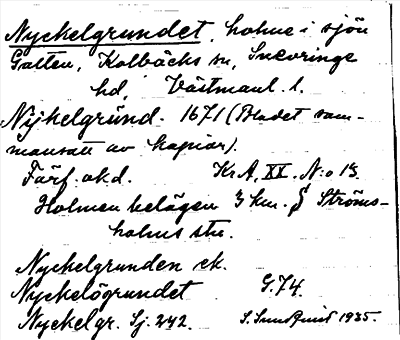 Nyckelgrundet, holme i sjön
Gatten, Kolbäcks sn, Snevringe
hd, Västmanl. l.
Nijkelgründ. 1671 (Bladet sam-
mansatt av kopior).
Färf. okd. Kr A, XX. N:o 13
Holmen belägen 3 km. S Ströms-
holms stn.
Nyckelgrunden ek.
Nyckelögrundet G.74.
Nyckelgr. Sj. 242. S. Sundquist 1935.